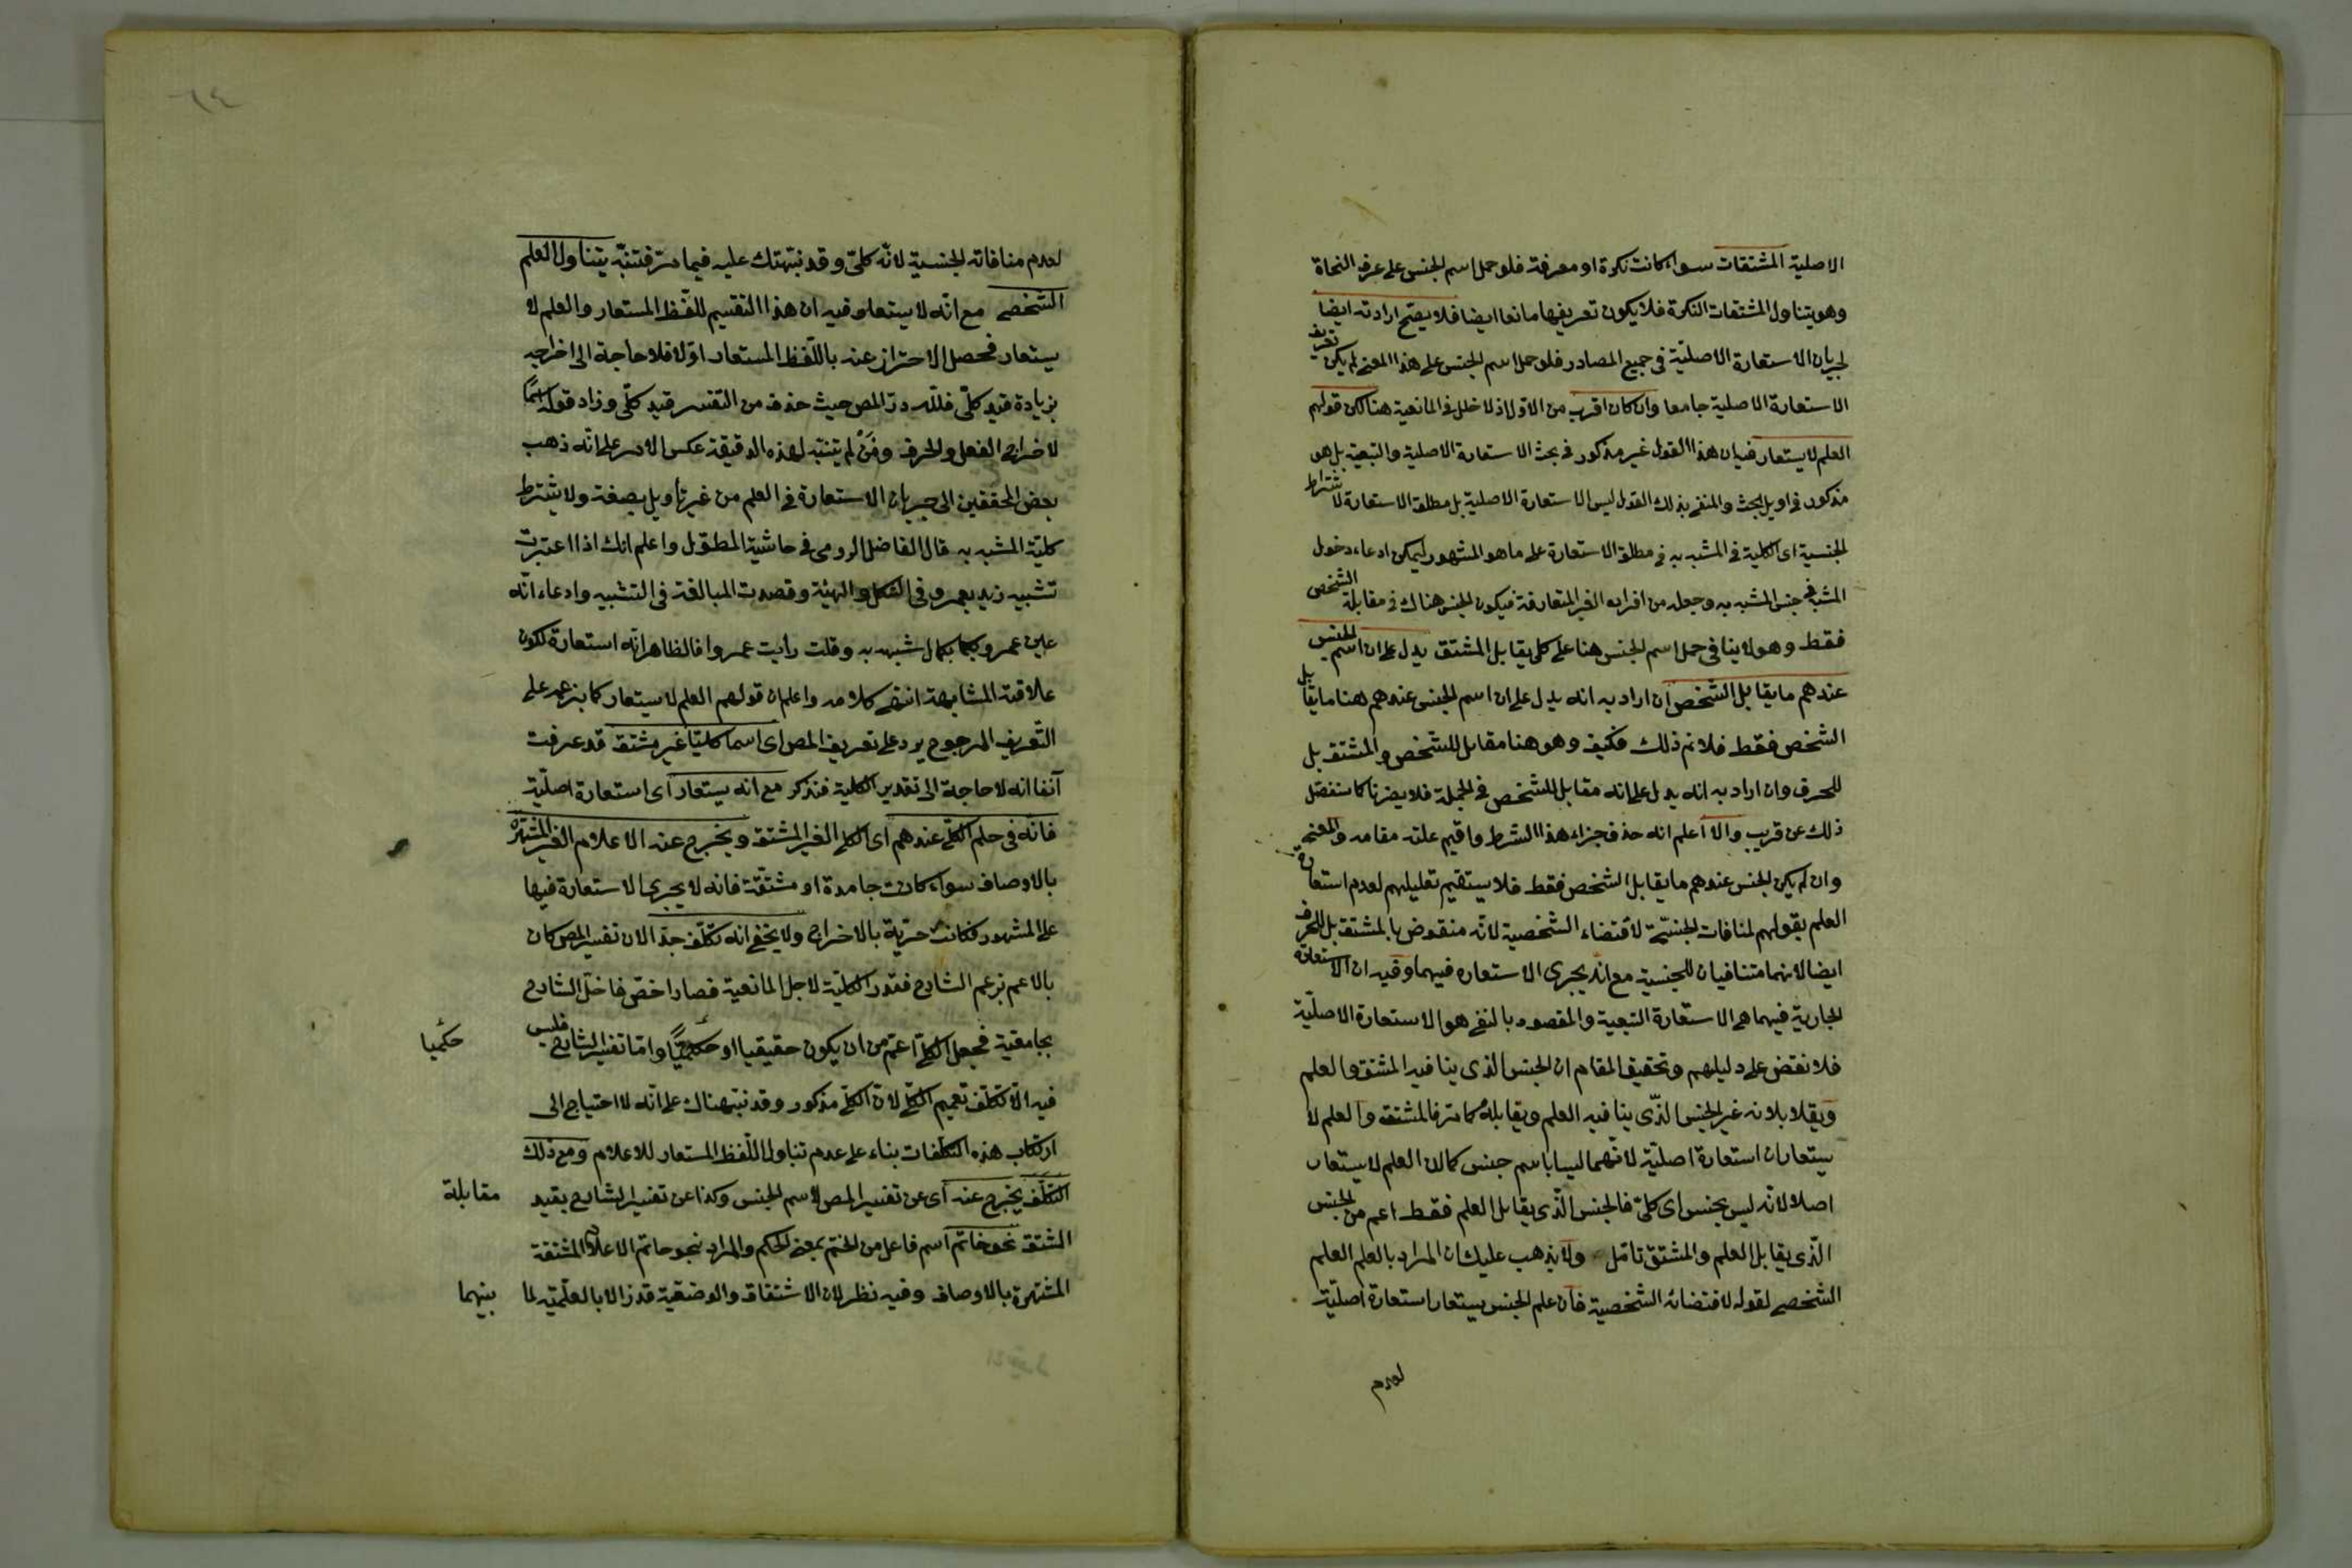 الاصلية المشتقات سواء كانت نكرة او معرفة فلو حمل اسم الجنس على عرف النحاة
وهو يتناول المشتقات النكرة فلا يكون تعريفها مانعا ايضا فلا يصح ارادته ايضا
لجريان الاستعارة الاصلية فى جميع المصادر فلو حمل اسم الجنس على هذا المعنى لم يكن تعريف
الاستعارة الاصلية جامعا وان كان اقرب من الاول اذ لا خلل فى المانعية هنا لكن قولهم
العلم لا يستعار فيه ان هذا القول غير مذكور فى بحث الاستعارة الاصلية والتبعية بل هو
مذكور فى اويل البحث والمنفى بذلك القول ليس الاستعارة الاصلية بل مطلق الاستعارة لاشتراط
الجنسية اى الكلية فى المشبه به فى مطلق الاستعارة على ما هو المشهور ليمكن ادعاء دخول
المشبه فى جنس المشبه به وجعله من افراده الغير المتعارفة فيكون الجنس هناك فى مقابلة الشخص
فقط وهو لا ينافى حمل اسم الجنس هنا على كلى يقابل المشتق يدل على ان اسم الجنس
عندهم ما يقابل الشخص ان اراد به انه يدل على ان اسم الجنس عندهم هنا ما يقابل
الشخص فقط فلا نم ذلك فكيف وهو هنا مقابل للشخص والمشتق بل
للحرف وان اراد به انه يدل على انه مقابل للشخص فى الجملة فلا يضرنا كما سنفصل
ذلك عن قريب والا اعلم انه حذف جزاء هذا الشرط واقيم علته مقامه والمعنى
وان لم يكن الجنس عندهم ما يقابل الشخص فقط فلا يستقيم تعليلهم لعدم استعارة
العلم بقولهم لمنافات الجنسية لاقتضاء الشخصية لانه منقوض بالمشتق بل للحرف
ايضا لانهما متنافيان للجنسية مع انه يجرى الاستعاره فيهما وفيه ان الاستعارة
الجارية فيهما هى الاستعارة التبعية والمقصود بالنفى هو الاستعارة الاصلية
فلا نقض على دليلهم وتحقيق المقام ان الجنس الذى ينافيه المشتق والعلم
ويقلابلانه غير الجنس الذى ينافيه العلم ويقابله كما مر فالمشتق والعلم لا
يستعاران استعارة اصلية لانهما ليسا باسم جنس كما ان العلم لا يستعار
اصلا لانه ليس بجنس اى كلى فالجنس الذى يقابل العلم فقط اعم من الجنس
الذى يقابل العلم والمشتق تامل ولا يذهب عليك ان المراد بالعلم العلم
الشخصى لقوله لاقتضائه الشخصية فان علم الجنس يستعار استعارة اصلية
لعدم
٦٤
لعدم منافاته الجنسية لانه كلى وقد نبهتك عليه فيما مر فتنبه يتناول العلم
الشخصى مع انه لا يستعار وفيه ان هذا التقسيم للفظ المستعار والعلم لا
يستعار فحصل الاحتراز عنه باللفظ المستعار اولا فلا حاجة الى اخراجه
بزيادة قيد كلى فلله در المص حيث حذف من التفسير قيد كلى وزاد قوله اسما
لاخراج الفعل والحرف ومن لم يتنبه لهذه الدقيقة عكس الامر على انه ذهب
بعض المحققين الى جريان الاستعارة فى العلم من غير تأويل بصفة ولا يشترط
كلية المشبه به قال الفاضل الرومى فى حاشية المطول واعلم انك اذا اعتبرت
تشبيه زيد بعمرو فى الشكل والهيئة وقصدت المبالغة فى التشبيه وادعاء انه
عين عمرو بكمال شبهه به وقلت رأيت عمروا فالظاهر انه استعارة لكون
علاقة المشابهة انتهى كلامه واعلم ان قولهم العلم لا يستعار كما يزعمه على
التعريف المرجوح يرد على تعريف المص اى اسما كليا غير مشتق قد عرفت
آنفا انه لا حاجة الى تقدير الكلية فتذكر مع انه يستعار اى استعارة اصلية
فانه فى حكم الكلى عندهم اى الكلى الغير المشتق ويخرج عنه الاعلام الغير المشتهرة
بالاوصاف سواء كانت جامدة او مشتقة فانه لا يجرى الاستعارة فيها
على المشهور فكانت حرية بالاخراج ولا يخفى انه تكلف جدا لان تفسير المص كان
بالاعم بزعم الشارح فقدر الكلية لاجل المانعية فصار اخص فاختل الشارح
بجامعية فجعل الكلى اعم من ان يكون حقيقيا او حكميا واما تفسير الشارح فليس
حكميا
فيه الا تكلف تعميم الكلى لان الكلى مذكور وقد نبهناك على انه لا احتياج الى
ارتكاب هذه التكلفات بناء على عدم تناول اللفظ المستعار للاعلام ومع ذلك
التكلف يخرج عنه اى عن تفسير المص لاسم الجنس وكذا عن تفسير الشارح بقيد
مقابلة
المشتق نحو خاتم اسم فاعل من الختم بمعنى الحكم والمراد نبحو حاتم الاعلام المشتقة
المشتهرة بالاوصاف وفيه نظر لان الاشتقاق والوصفية قد زالا بالعلمية لما
بينهما